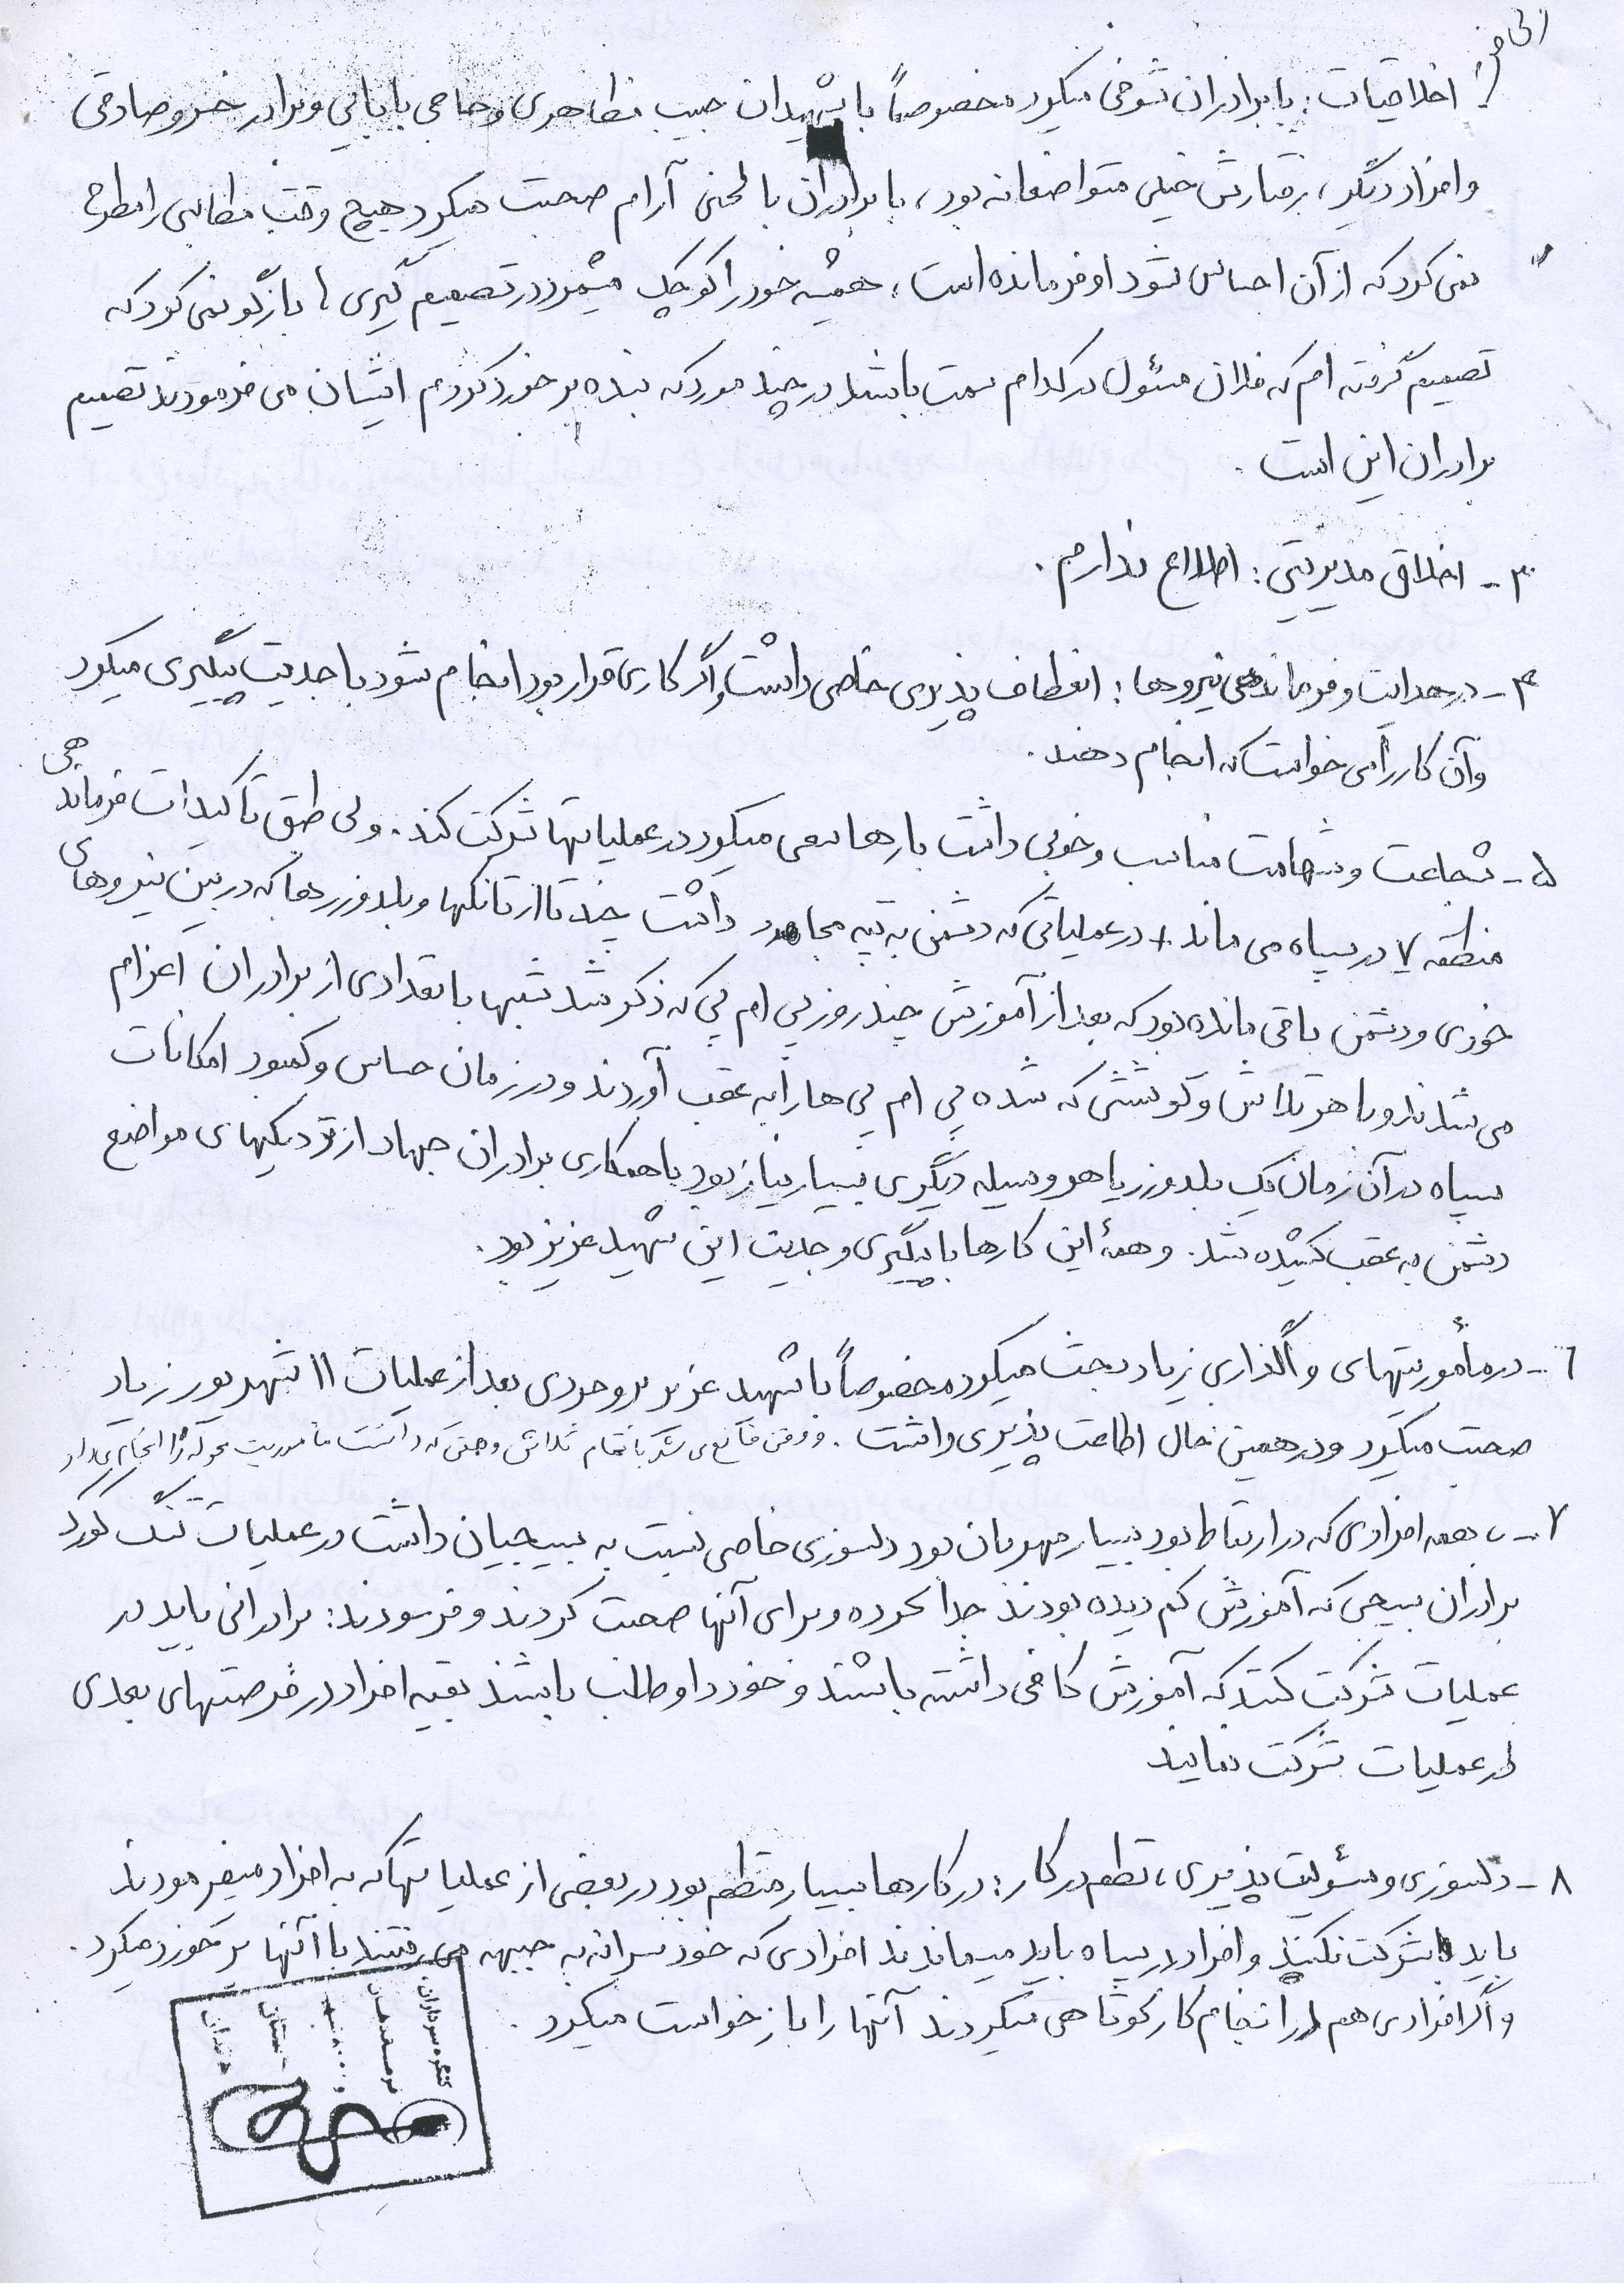 اخلاقیات: با برادران شوخی میکرد مخصوصاً با شهیدان حبیب مظاهری و حاجی بابایی و برادر خسرو صادقی
و افراد دیگر، رفتارش خیلی متواضعانه بود، با برادران با لحنی آرام صحبت میکرد هیچ وقت مطالبی را مطرح
نمی کرد که از آن احساس شود او فرمانده است، همیشه خود را کوچک میشمرد در تصمیم گیری ها بازگو نمی کرد که
تصمیم گرفته ام که فلان مسئول در کدام سمت باشد در چند مورد که بنده برخورد کردم ایشان می فرمودند تصمیم
برادران این است.
۳ - اخلاق مدیریتی: اطلاع ندارم.
۴ - در هدایت و فرماندهی نیروها: انعطاف پذیری خاصی داشت و اگر کاری قرار بود انجام شود با جدیت پیگیری میکرد
و آن کار را می خواست که انجام دهند.
۵ - شجاعت و شهامت مناسب و خوبی داشت بارها سعی میکرد در عملیاتها شرکت کند. ولی طبق تاکیدات فرماندهی
منطقه ۷ در سپاه می ماند + در عملیاتی که دشمن به تپه مجاهد داشت چند تا از تانکها و بلدوزرها که در بین نیروهای
خودی و دشمن باقی مانده بود که بعد از آموزش چند روز پی ام پی که ذکر شد شبها با تعدادی از برادران اعزام
می شدند و با هر تلاش و کوششی که شده پی ام پی ها را به عقب آوردند و در زمان حساس و کمبود امکانات
سپاه در آن زمان یک بلدوزر یا هر وسیله دیگری بسیار نیاز بود با همکاری برادران جهاد از نزدیکیهای مواضع
دشمن به عقب کشیده شد. و همهٔ این کارها با پیگیری و جدیت این شهید عزیز بود.
۶ - در مأموریتهای واگذاری زیاد بحث میکرد مخصوصاً با شهید عزیز بروجردی بعد از عملیات ۱۱ شهریور زیاد
صحبت میکرد و در همین حال اطاعت پذیری داشت. و وقتی قانع می شد با تمام تلاش که داشت مأموریت محوله را انجام می داد
۷ - با همه افرادی که در ارتباط بود بسیار مهربان بود دلسوزی خاصی نسبت به بسیجیان داشت در عملیات تنگ کورک
برادران بسیجی که آموزش کم دیده بودند جدا کرده و برای آنها صحبت کردند و فرمودند: برادرانی باید در
عملیات شرکت کنند که آموزش کافی داشته باشند و خود داوطلب باشند بقیه افراد در فرصتهای بعدی
در عملیات شرکت نمایند
۸ - دلسوزی و مسئولیت پذیری، نظم در کار: در کارها بسیار منظم بود در بعضی از عملیاتها که به افراد میفرمودند
باید شرکت نکنید و افراد در سپاه باید میماندند افرادی که خودسرانه به جبهه می رفتند با آنها برخورد میکرد.
و اگر افرادی هم در انجام کار کوتاهی میکردند آنها را بازخواست میکرد.
کنگره سرداران